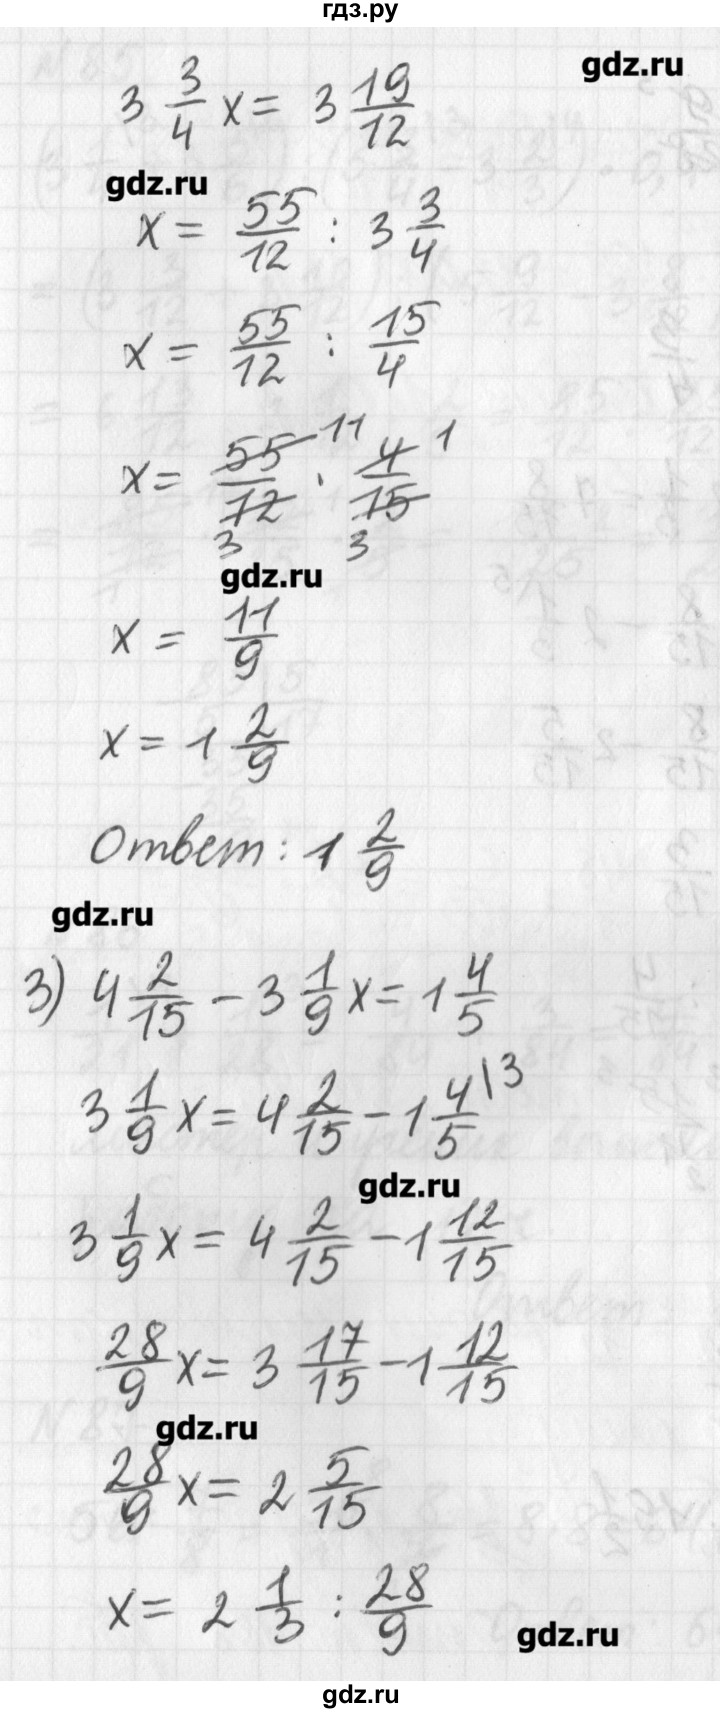 гдз.ру
gdz.ru
3 3/4 x = 3 19/12
gdz.ru
x = 55/12 : 3 3/4
x = 55/12 : 15/4
x = 55/12 · 4/15 11 1 3 3
gdz.ru
x = 11/9
x = 1 2/9
Ответ: 1 2/9
gdz.ru
3) 4 2/15 - 3 1/9 x = 1 4/5
3 1/9 x = 4 2/15 - 1 4/5 \3
gdz.ru
3 1/9 x = 4 2/15 - 1 12/15
28/9 x = 3 17/15 - 1 12/15
gdz.ru
28/9 x = 2 5/15
x = 2 1/3 : 28/9
gdz.ru
gdz.ru